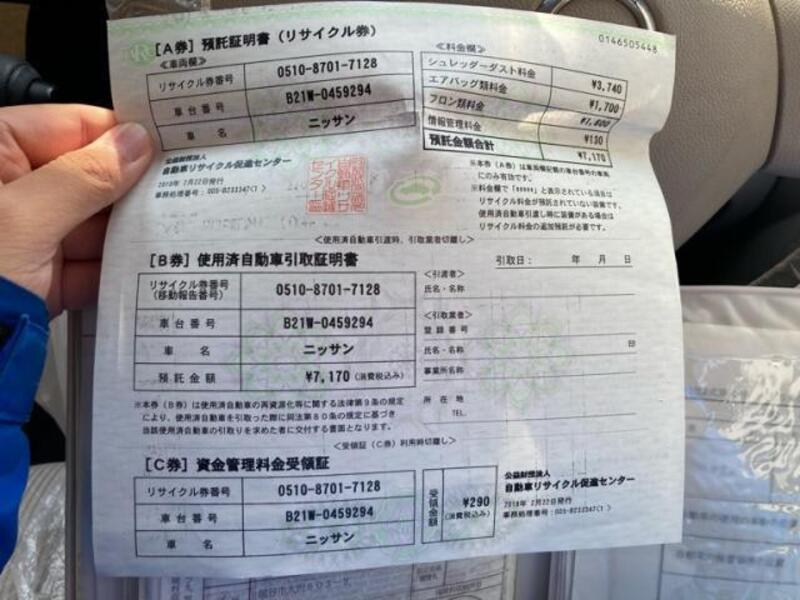 0146505448
[A券] 預託証明書 (リサイクル券)
≪車両欄≫
リサイクル券番号 0510-8701-7128
車台番号 B21W-0459294
車 名 ニッサン
≪料金欄≫
シュレッダーダスト料金 ¥3,740
エアバッグ類料金 ¥1,700
フロン類料金 ¥1,600
情報管理料金 ¥130
預託金額合計 ¥7,170
公益財団法人
自動車リサイクル促進センター
2018年 2月22日発行
※本券(A券)は車両欄記載の車台番号の車両
にのみ有効です。
※料金欄で「*****」と表示されている項目は
リサイクル料金が預託されていない装備です。
使用済自動車引渡し時に装備がある場合は
リサイクル料金の追加預託が必要です。
<使用済自動車引渡時、引取業者切離し>
[B券] 使用済自動車引取証明書
引取日: 年 月 日
リサイクル券番号
(移動報告番号) 0510-8701-7128
車台番号 B21W-0459294
車 名 ニッサン
預託金額 ¥7,170 (消費税込み)
<引渡者>
氏名・名称
<引取業者>
登録番号
氏名・名称 印
事業所名称
所在地
TEL.
※本券(B券)は使用済自動車の再資源化等に関する法律第9条の規定
により、使用済自動車を引取った際に同法第80条の規定に基づき
当該使用済自動車の引取りを求めた者に交付する書面となります。
<受領証(C券)利用時切離し>
[C券] 資金管理料金受領証
リサイクル券番号 0510-8701-7128
車台番号 B21W-0459294
車 名 ニッサン
受領金額 ¥290
(消費税込み)
公益財団法人
自動車リサイクル促進センター
2018年 2月22日発行